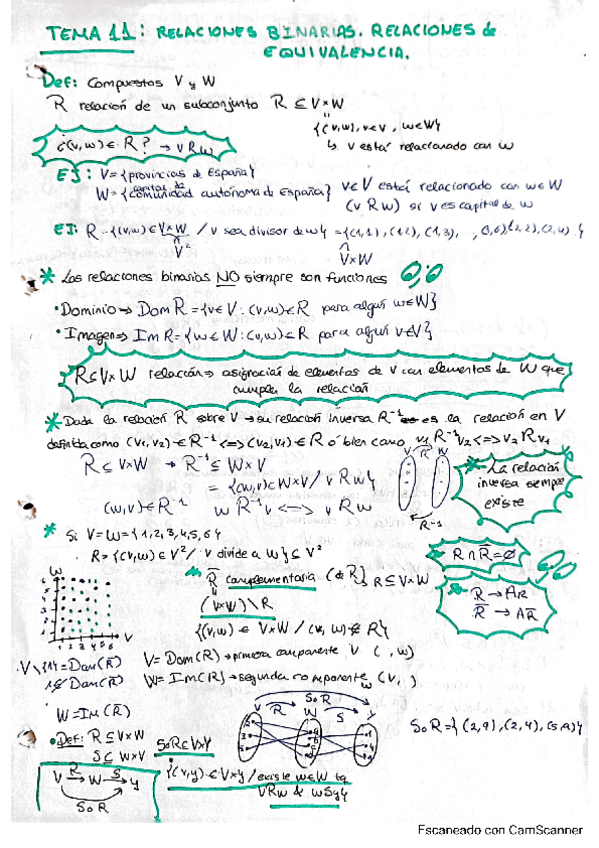 TEMA 11: RELACIONES BINARIAS. RELACIONES de
EQUIVALENCIA.
Def: Compuestos V y W
R relación de un subconjunto R ⊆ V×W
{(v,w), v∈V, w∈W}
↳ v está relacionado con w
¿(v,w) ∈ R? → vRw
EJ: V = {provincias de España}
W = {capital de comunidad autónoma de españa} v∈V está relacionado con w∈W
(v R w) si v es capital de w
EJ: R = {(v,w) ∈ V×W / v sea divisor de w} = {(1,1), (1,2), (1,3), , (1,6), (2,2), (2,4) }
V² V×W
* Las relaciones binarias NO siempre son funciones
• Dominio → Dom R = {v∈V : (v,w) ∈ R para algún w∈W}
• Imagen → Im R = {w∈W : (v,w) ∈ R para algún v∈V}
R⊆V×W relación → asignación de elementos de V con elementos de W que
cumplen la relación
* Dada la relación R sobre V → su relación inversa R⁻¹ es la relación en V
definida como (v₁,v₂) ∈ R⁻¹ <=> (v₂,v₁) ∈ R ó bien como v₁ R⁻¹ v₂ <=> v₂ R v₁
R ⊆ V×W → R⁻¹ ⊆ W×V
= {(w,v) ∈ W×V / v R w}
(w,v) ∈ R⁻¹ w R⁻¹ v <=> v R w
V R W
R⁻¹
* La relación
inversa siempre
existe
* Si V = W = {1,2,3,4,5,6}
R = {(v,w) ∈ V² / v divide a w} ⊆ V²
R ∩ R̅ = ∅
R̅ complementaria (de R) R ⊆ V×W
(V×W) \ R
{(v,w) ∈ V×W / (v,w) ∉ R}
R → A_R
R̅ → A_R̅
W
6
5
4
3
2
1
1 2 3 4 5 6 V
V \ {1} = Dom(R̅)
1 ∉ Dom(R̅)
W = Im(R̅)
V = Dom(R) → primera componente V ( , w)
W = Im(R) → segunda componente W (v, )
• Def: R ⊆ V×W
S ⊆ W×Y
SoR ⊆ V×Y
{(v,y) ∈ V×Y / existe w∈W tq
vRw & wSy}
V R W S Y
SoR
SoR
V R W S Y
SoR = { (2,9), (2,4), (5,9) }
Escaneado con CamScanner